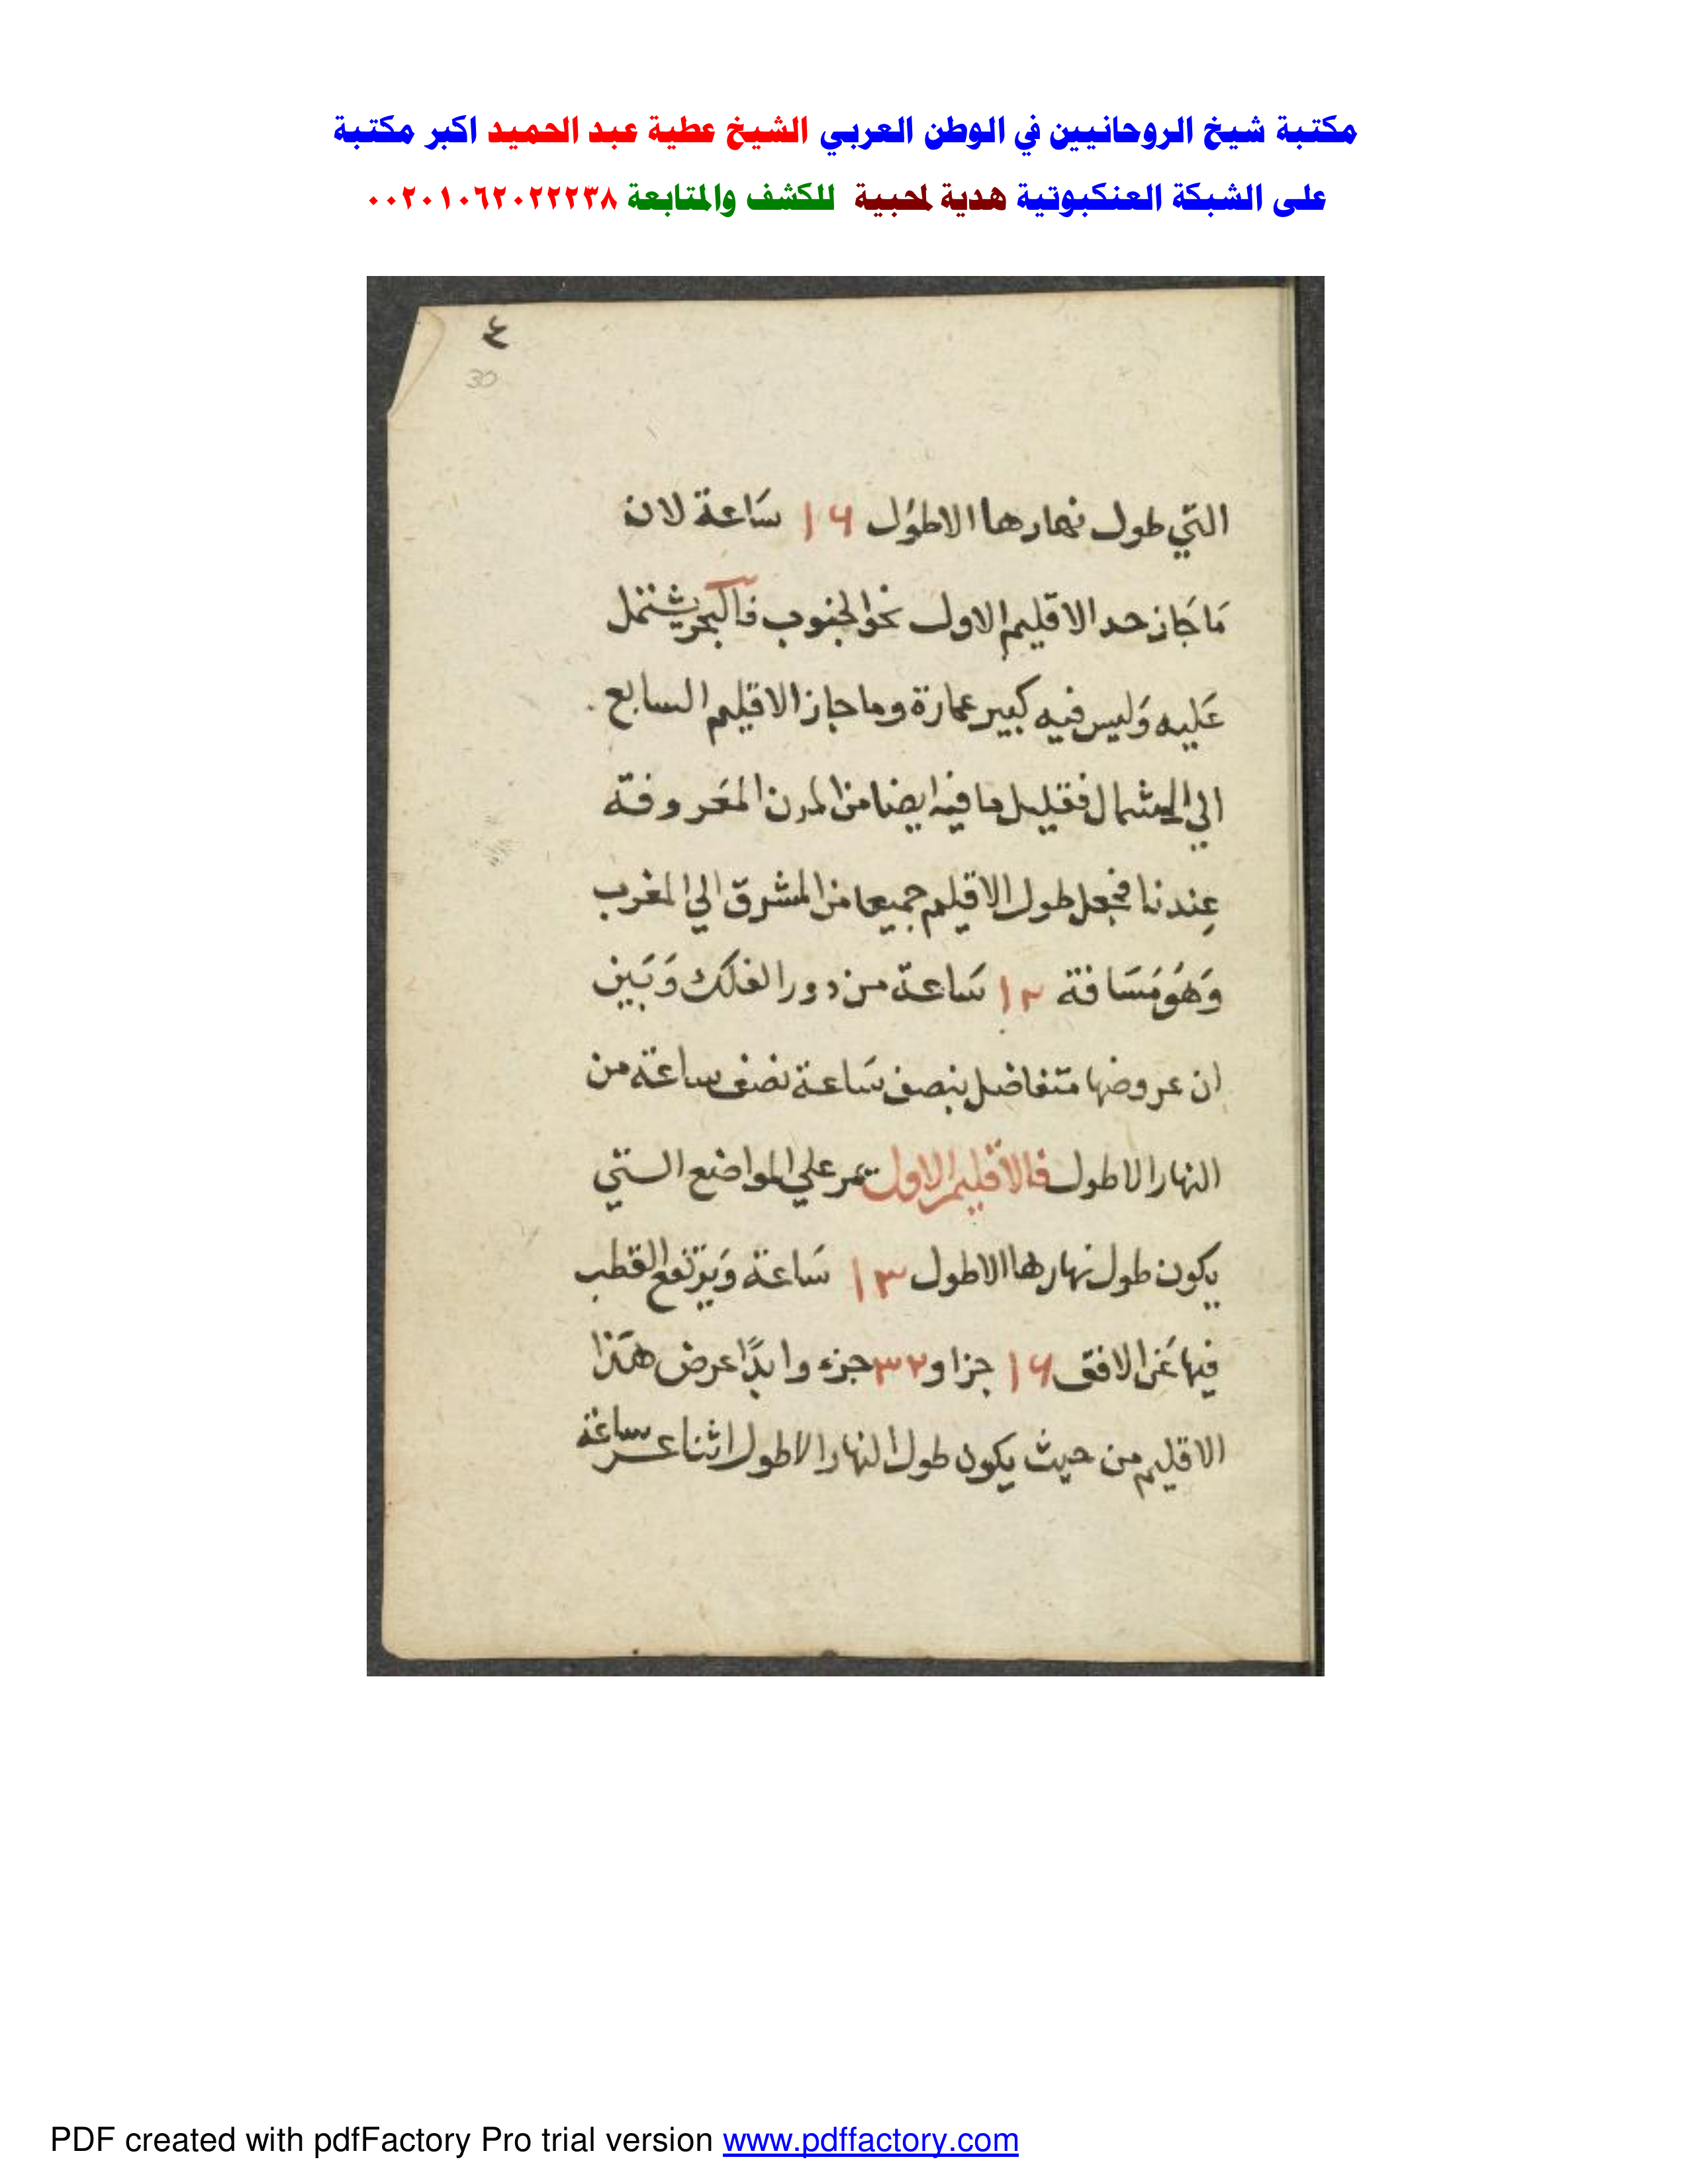 مكتبة شيخ الروحانيين في الوطن العربي الشيخ عطية عبد الحميد اكبر مكتبة
على الشبكة العنكبوتية هدية لمحبية للكشف والمتابعة ٠٠٢٠١٠٦٢٠٢٢٢٣٨
٤
30
التي طول نهارها الاطوُل ١٦ سَاعة لان
مَا جَاز حد الاقليم الاول نحو الجنوب فالبحر يشتمل
عَليه وَليس فيه كبير عمارة وما جاز الاقليم السابع
الي الشمال فقليل ما فيه ايضا من المدن المعَروفة
عِندنا فجعل طول الاقليم جميعا من المشرق الي المغرب
وَهوَ مَسَافة ١٢ سَاعة من دور الفلك وَبَين
ان عروضها متفاضل بنصف سَاعة نصف ساعة من
النهار الاطول فالاقليم الاول يمر علي المواضع التي
يكون طول نهارها الاطول ١٣ سَاعة وَيرتفع القطب
فيها عَن الافق ١٦ جزا و ٣٢ جزء وابدًا عرض هَذا
الاقليم من حيث يكون طول النهار الاطول اثنا عشر ساعة
PDF created with pdfFactory Pro trial version www.pdffactory.com